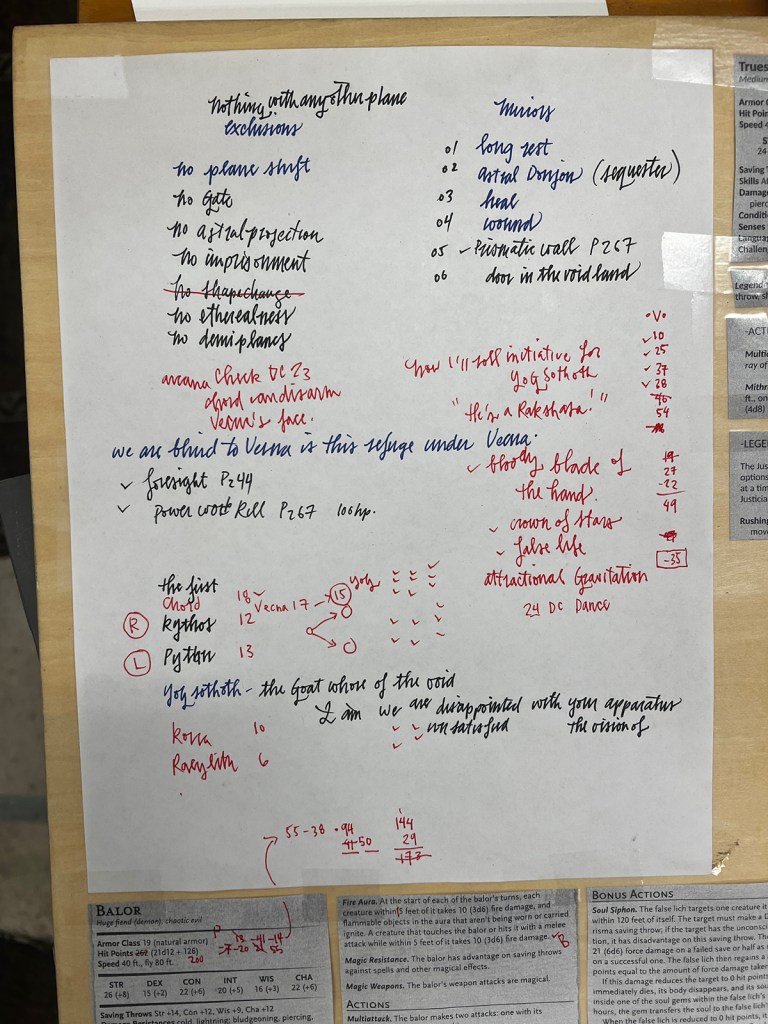 nothing with any other plane
exclusions
no plane shift
no Gate
no astral projection
no imprisonment
no shapechange
no etherealness
no demiplanes
mirrors
01 long rest
02 astral Donjon (sequester)
03 heal
04 wound
05 ✓ Prismatic wall P267
06 door in the void land
arcana check DC 23
chord can disarm
Vecna's face.
now I'll roll initiative for
yog sothoth
"He's a Rakshasa!"
•V•
✓ 10
✓ 25
✓ 37
✓ 28
54
we are blind to Vecna is this refuge under Vecna.
✓ foresight P244
✓ power word kill P267 100hp.
✓ bloody blade of
the hand.
✓ crown of stars
✓ false life
attractional Gravitation
24 DC Dance
27
-22
49
-35
the first
Chord 18 ✓ Vecna 17 15 yog
R Kythos 12
L Python 13
yog sothoth - the Goat whore of the void
I am we are disappointed with your apparatus
the vision of
10
6
55-38 • 94
41-50
144
29
173
BALOR
Huge fiend (demon), chaotic evil
Armor Class 19 (natural armor)
Hit Points 262 (21d12 + 126)
200
Speed 40 ft., fly 80 ft.
STR DEX CON INT WIS CHA
26 (+8) 15 (+2) 22 (+6) 20 (+5) 16 (+3) 22 (+6)
Saving Throws Str +14, Con +12, Wis +9, Cha +12
Fire Aura. At the start of each of the balor's turns, each
creature within 5 feet of it takes 10 (3d6) fire damage, and
flammable objects in the aura that aren't being worn or carried
ignite. A creature that touches the balor or hits it with a melee
attack while within 5 feet of it takes 10 (3d6) fire damage.
Magic Resistance. The balor has advantage on saving throws
against spells and other magical effects.
Magic Weapons. The balor's weapon attacks are magical.
ACTIONS
Multiattack. The balor makes two attacks: one with its
BONUS ACTIONS
Soul Siphon. The false lich targets one creature it
within 120 feet of itself. The target must make a
risma saving throw; if the target has the
tion, it has disadvantage on this saving throw. The
21 (6d6) force damage on a failed save or half as
on a successful one. The false lich then regains a
points equal to the amount of force damage taken
If this damage reduces the target to 0 hit points
immediately dies, its body disappears, and its
inside one of the soul gems within the false lich's
hours, the gem transfers the soul to the false lich's
When the false lich is reduced to 0 hit points, it
Trues
Medium
Armor
Hit Poin
Speed
24
Saving
Skills
Damage
pierc
Conditi
Senses
Languag
Challen
Legend
throw,
-ACT
Multi
ray of
Mithr
ft., on
(4d8)
-LEGE
The Jus
options
at a tim
Justicia
Rushing
move